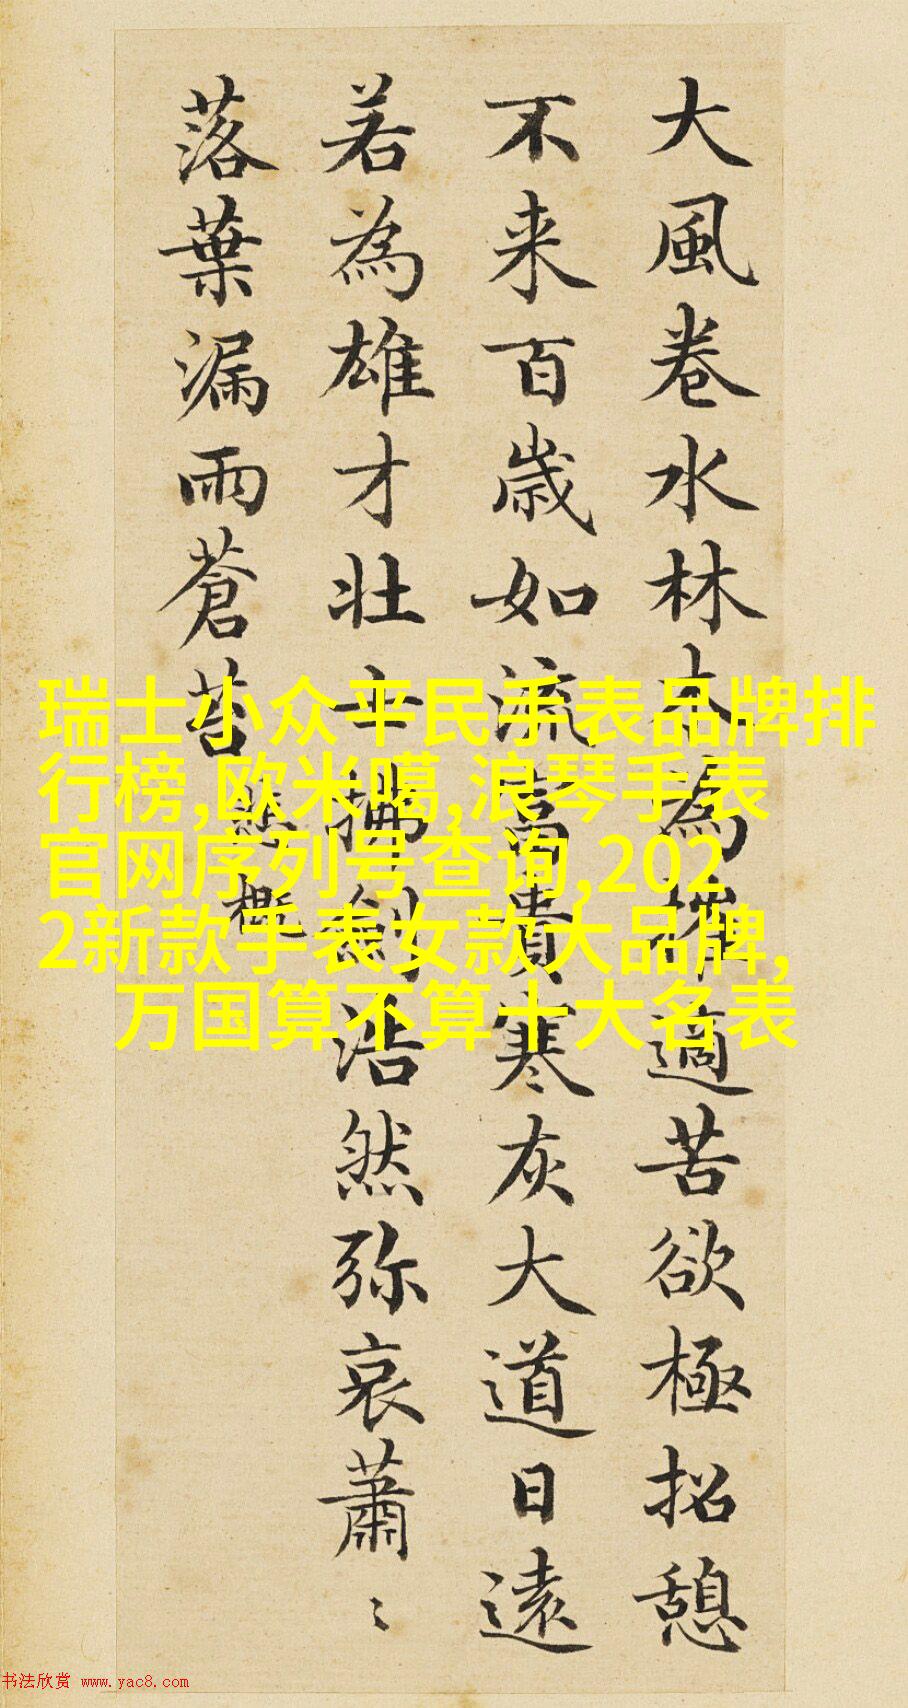 大風卷水林木為摧適苦欲極招憩
不来百歳如流富貴寒灰大道日遠
若為雄才壮士拂劍浩然弥哀蕭〻
落葉漏雨蒼苔
悲慨
瑞士小众平民手表品牌排
行榜,欧米噶,浪琴手表
官网序列号查询,202
2新款手表女款大品牌,
万国算不算十大名表
书法欣赏 www.yac8.com